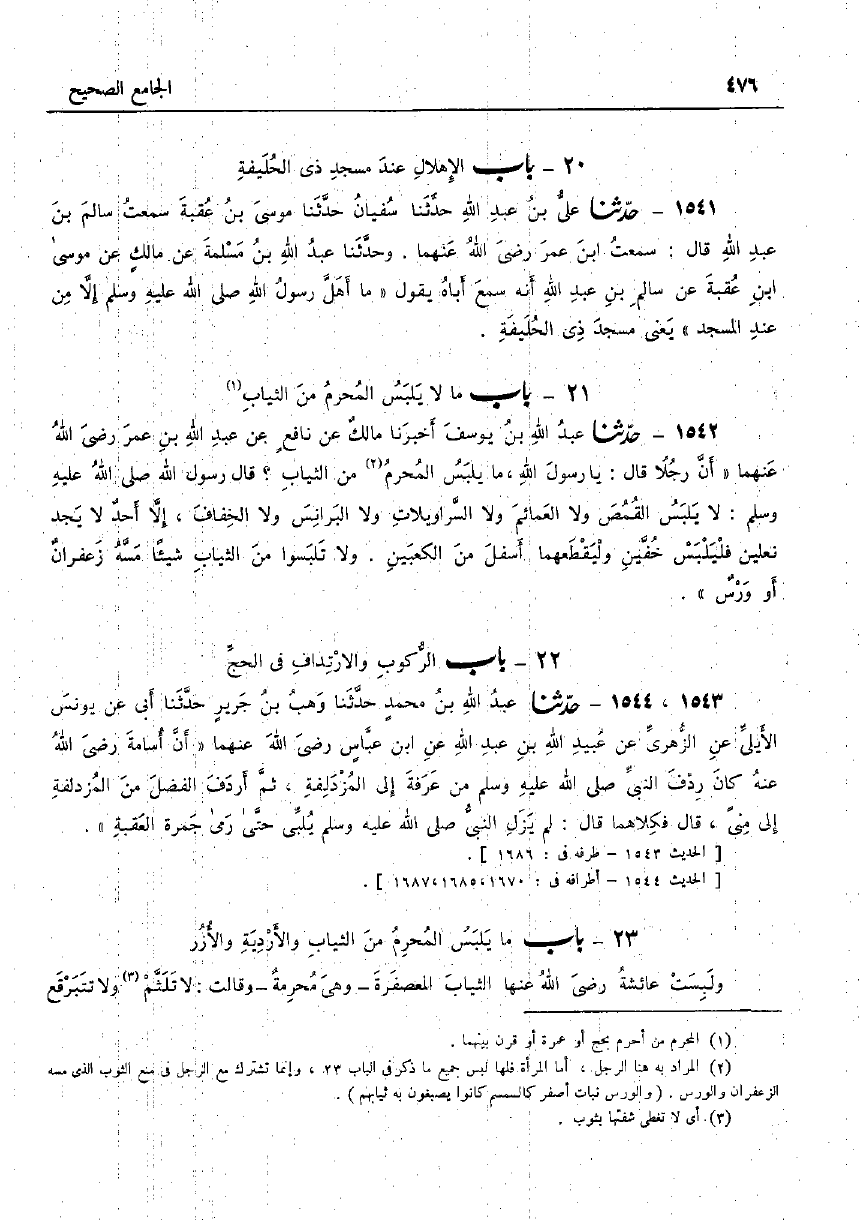 ٤٧٦ الجامع الصحيح
٢٠ – باب الإهلالِ عندَ مسجدِ ذى الحُلَيفةِ
١٥٤١ – حدّثنا علىُّ بنُ عبدِ اللهِ حدَّثَنا سُفيانُ حدَّثَنا موسىَ بنُ عُقبةَ سمعتُ سالمَ بنَ
عبدِ اللهِ قال : سمعتُ ابنَ عمرَ رضىَ اللهُ عَنهما . وحدَّثَنا عبدُ اللهِ بنُ مَسْلمةَ عن مالكٍ عن موسىٰ
ابنِ عُقبةَ عن سالمِ بنِ عبدِ اللهِ أنه سمعَ أَباهُ يقول « ما أَهَلَّ رسولُ اللهِ صلى الله عليهِ وسلم إلَّا مِن
عندِ المسجد » يَعنى مسجدَ ذِى الحُلَيفَةِ .
٢١ – باب ما لا يَلبَسُ المُحرمُ منَ الثيابِ(١)
١٥٤٢ – حدّثنا عبدُ اللهِ بنُ يوسفَ أَخبرَنا مالكٌ عن نافعٍ عن عبدِ اللهِ بنِ عمرَ رضىَ اللهُ
عَنهما « أَنَّ رجُلًا قال : يا رسولَ اللهِ ، ما يلبَسُ المُحرمُ(٢) من الثيابِ ؟ قال رسول الله صلى اللهُ عليهِ
وسلم : لا يَلبَسُ القُمُصَ ولا العَمائمَ ولا السَّراويلاتِ ولا البَرانِسَ ولا الخِفافَ ، إلَّا أَحدٌ لا يَجد
نعلين فلْيَلْبَسْ خُفَّينِ ولْيَقْطَعهما أَسفلَ منَ الكعبَينِ . ولا تَلبَسوا منَ الثيابِ شيئًا مَسَّهُ زَعفرانٌ
أَو وَرْسٌ » .
٢٢ – باب الرُّكوبِ والارْتِدافِ فى الحجِّ
١٥٤٣ ، ١٥٤٤ – حدّثنا عبدُ اللهِ بنُ محمدٍ حدَّثَنا وَهبُ بنُ جَريرٍ حدَّثَنا أَبى عن يونسَ
الأَيلىِّ عنِ الزُّهرىِّ عن عُبيدِ اللهِ بنِ عبدِ اللهِ عنِ ابن عبَّاسٍ رضىَ اللهَ عنهما « أَنَّ أُسامةَ رضىَ اللهُ
عنهُ كانَ رِدْفَ النبىِّ صلى الله عليهِ وسلم من عَرَفَةَ إلى المُزْدَلِفةِ ، ثمَّ أَردَفَ الفضلَ منَ المُزدلفةِ
إلى مِنىً ، قال فكِلاهما قال : لم يَزَلِ النبىُّ صلى الله عليه وسلم يُلبِّى حتَّىٰ رَمىٰ جَمرةَ العَقبةِ » .
[ الحديث ١٥٤٣ – طرفه فى : ١٦٨٦ ] .
[ الحديث ١٥٤٤ – أطرافه فى : ١٦٧٠ ، ١٦٨٥ ، ١٦٨٧ ] .
٢٣ – باب ما يَلبَسُ المُحرِمُ منَ الثيابِ والأَرْدِيَةِ والأُزُر
ولَبِسَتْ عائشةُ رضىَ اللهُ عنها الثيابَ المعصفَرةَ – وهىَ مُحرِمةٌ – وقالت : لا تَلَثَّمْ(٣) ولا تتَبَرْقَع
(١) المحرم من أحرم بحج أو عمرة أو قرن بينهما .
(٢) المراد به هنا الرجل ، أما المرأة فلها لبس جميع ما ذكر فى الباب ٢٣ ، وإنما تشترك مع الرجل فى منع الثوب الذى مسه
الزعفران والورس . ( والورس نبات أصفر كالسمسم كانوا يصبغون به ثيابهم ) .
(٣) أى لا تغطى شفتها بثوب .